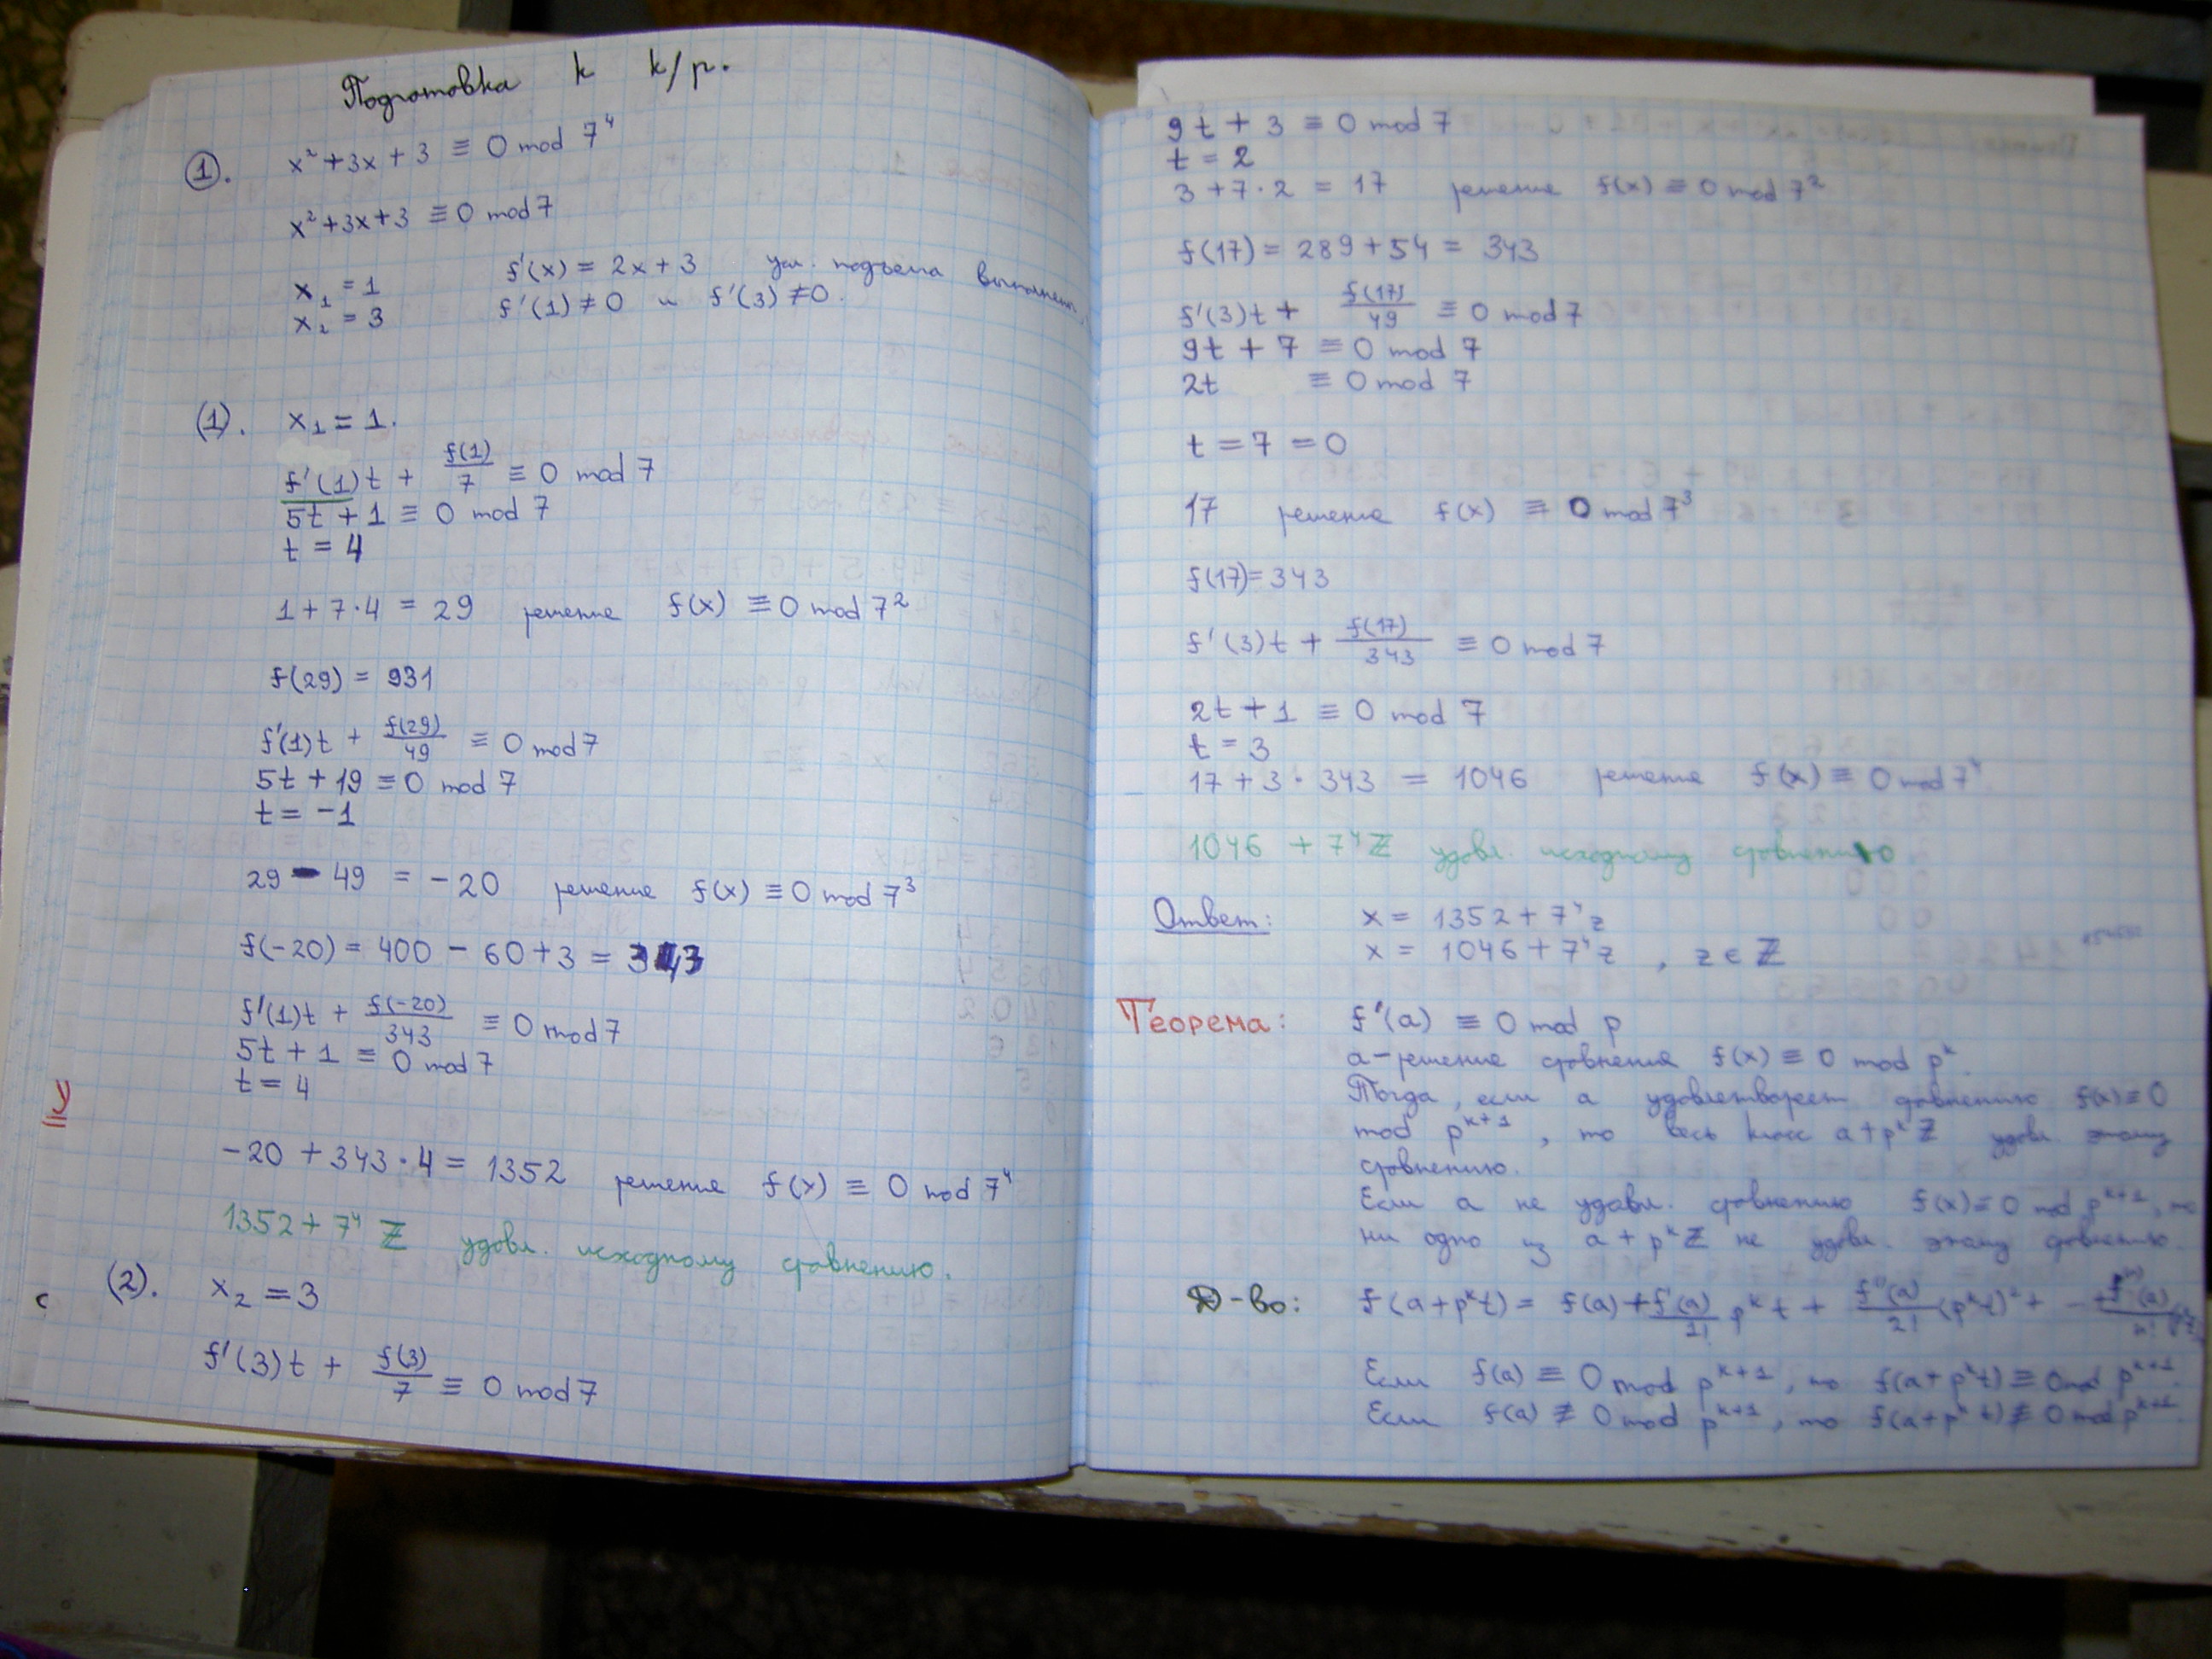 Подготовка к к/р.
①. x² + 3x + 3 ≡ 0 mod 7⁴
x² + 3x + 3 ≡ 0 mod 7
x₁ = 1 f'(x) = 2x + 3 усл. подъема выполнены
x₂ = 3 f'(1) ≠ 0 и f'(3) ≠ 0.
(1). x₁ = 1.
f'(1)t + f(1)/7 ≡ 0 mod 7
5t + 1 ≡ 0 mod 7
t = 4
1 + 7·4 = 29 решение f(x) ≡ 0 mod 7²
f(29) = 931
f'(1)t + f(29)/49 ≡ 0 mod 7
5t + 19 ≡ 0 mod 7
t = -1
29 - 49 = -20 решение f(x) ≡ 0 mod 7³
f(-20) = 400 - 60 + 3 = 343
f'(1)t + f(-20)/343 ≡ 0 mod 7
5t + 1 ≡ 0 mod 7
t = 4
У
-20 + 343·4 = 1352 решения f(x) ≡ 0 mod 7⁴
1352 + 7⁴ Z удовл. исходному сравнению.
(2). x₂ = 3
с
f'(3)t + f(3)/7 ≡ 0 mod 7
9t + 3 ≡ 0 mod 7
t = 2
3 + 7·2 = 17 решение f(x) ≡ 0 mod 7²
f(17) = 289 + 54 = 343
f'(3)t + f(17)/49 ≡ 0 mod 7
9t + 7 ≡ 0 mod 7
2t ≡ 0 mod 7
t = 7 = 0
17 решение f(x) ≡ 0 mod 7³
f(17) = 343
f'(3)t + f(17)/343 ≡ 0 mod 7
2t + 1 ≡ 0 mod 7
t = 3
17 + 3·343 = 1046 решение f(x) ≡ 0 mod 7⁴
1046 + 7⁴Z удовл. исходному сравнению
Ответ: x = 1352 + 7⁴z
x = 1046 + 7⁴z , z ∈ Z
Теорема: f'(a) ≡ 0 mod p
a - решение сравнения f(x) ≡ 0 mod pᵏ.
Тогда, если a удовлетворяет сравнению f(x) ≡ 0
mod pᵏ⁺¹, то весь класс a + pᵏZ удовл. этому
сравнению.
Если a не удовл. сравнению f(x) ≡ 0 mod pᵏ⁺¹, то
ни одно из a + pᵏZ не удовл. этому сравнению.
Д-во: f(a + pᵏt) = f(a) + f'(a)/1! pᵏt + f''(a)/2! (pᵏt)² + - + f⁽ⁿ⁾(a)/n!
Если f(a) ≡ 0 mod pᵏ⁺¹, то f(a + pᵏt) ≡ 0 mod pᵏ⁺¹.
Если f(a) ≢ 0 mod pᵏ⁺¹, то f(a + pᵏt) ≢ 0 mod pᵏ⁺¹.